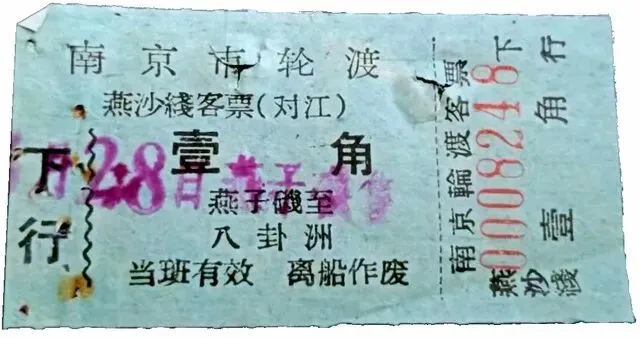 南京市轮渡
燕沙綫客票(对江)
壹角
燕子磯至
八卦洲
当班有效 离船作废
下行
28日
南京輪渡客票
0008248
下行
壹角
燕沙綫